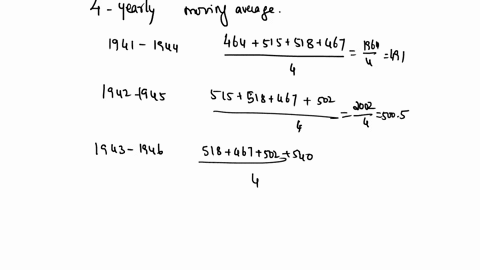 4 - yearly moving average.
1941 - 1944 464 + 515 + 518 + 467 / 4 = 1964 / 4 = 191
1942 - 1945 515 + 518 + 467 + 502 / 4 = 2002 / 4 = 500.5
1943 - 1946 518 + 467 + 502 + 540 / 4